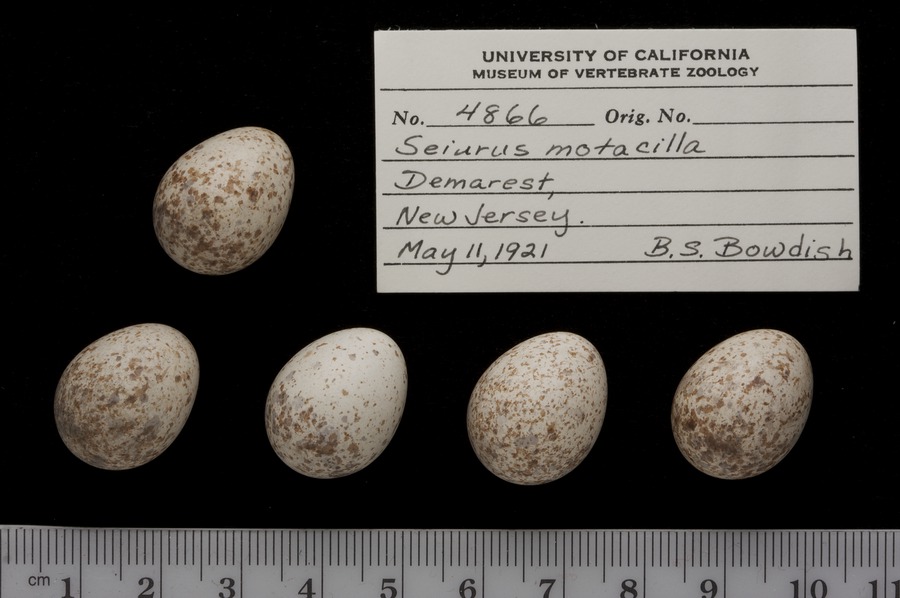 UNIVERSITY OF CALIFORNIA
MUSEUM OF VERTEBRATE ZOOLOGY
No. 4866 Orig. No.
Seiurus motacilla
Demarest,
New Jersey.
May 11, 1921 B.S. Bowdish
cm 1 2 3 4 5 6 7 8 9 10 11